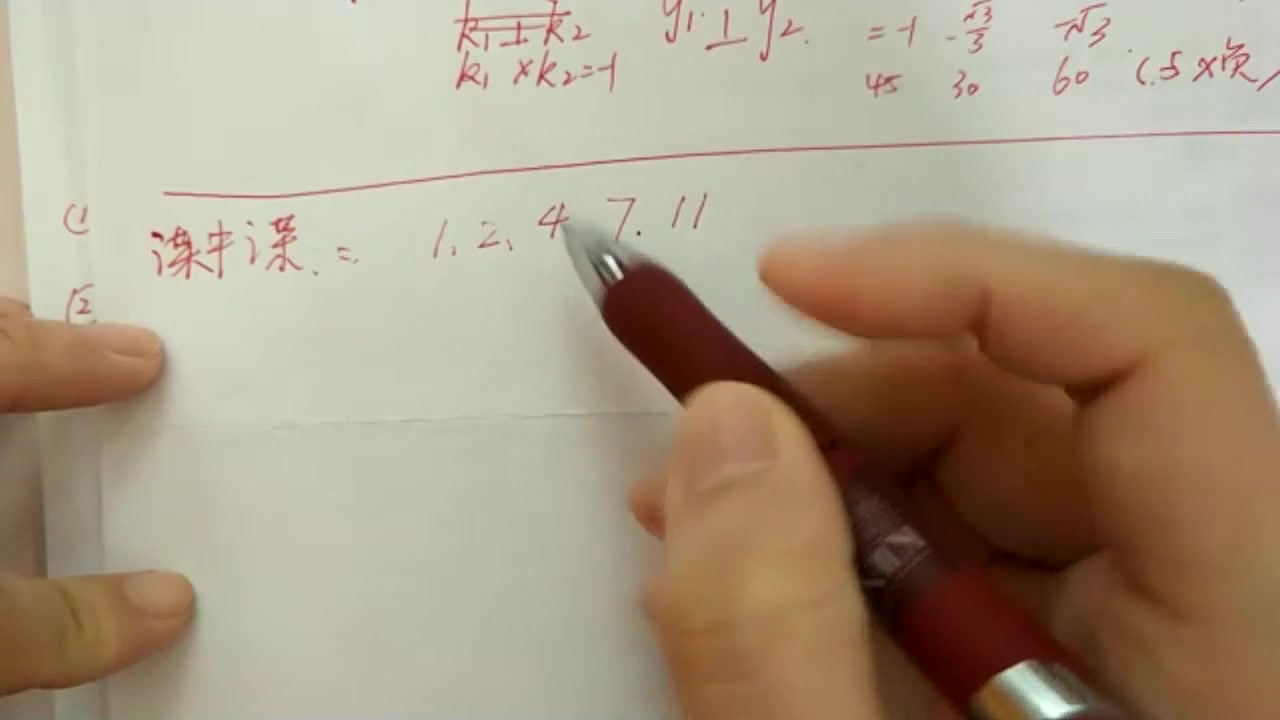 k₁⊥k₂ y₁⊥y₂ =-1 -√3/3 √3
k₁×k₂=-1 45 30 60 (.5×负)
(1
课中课.= 1、2、4、7.11
(2